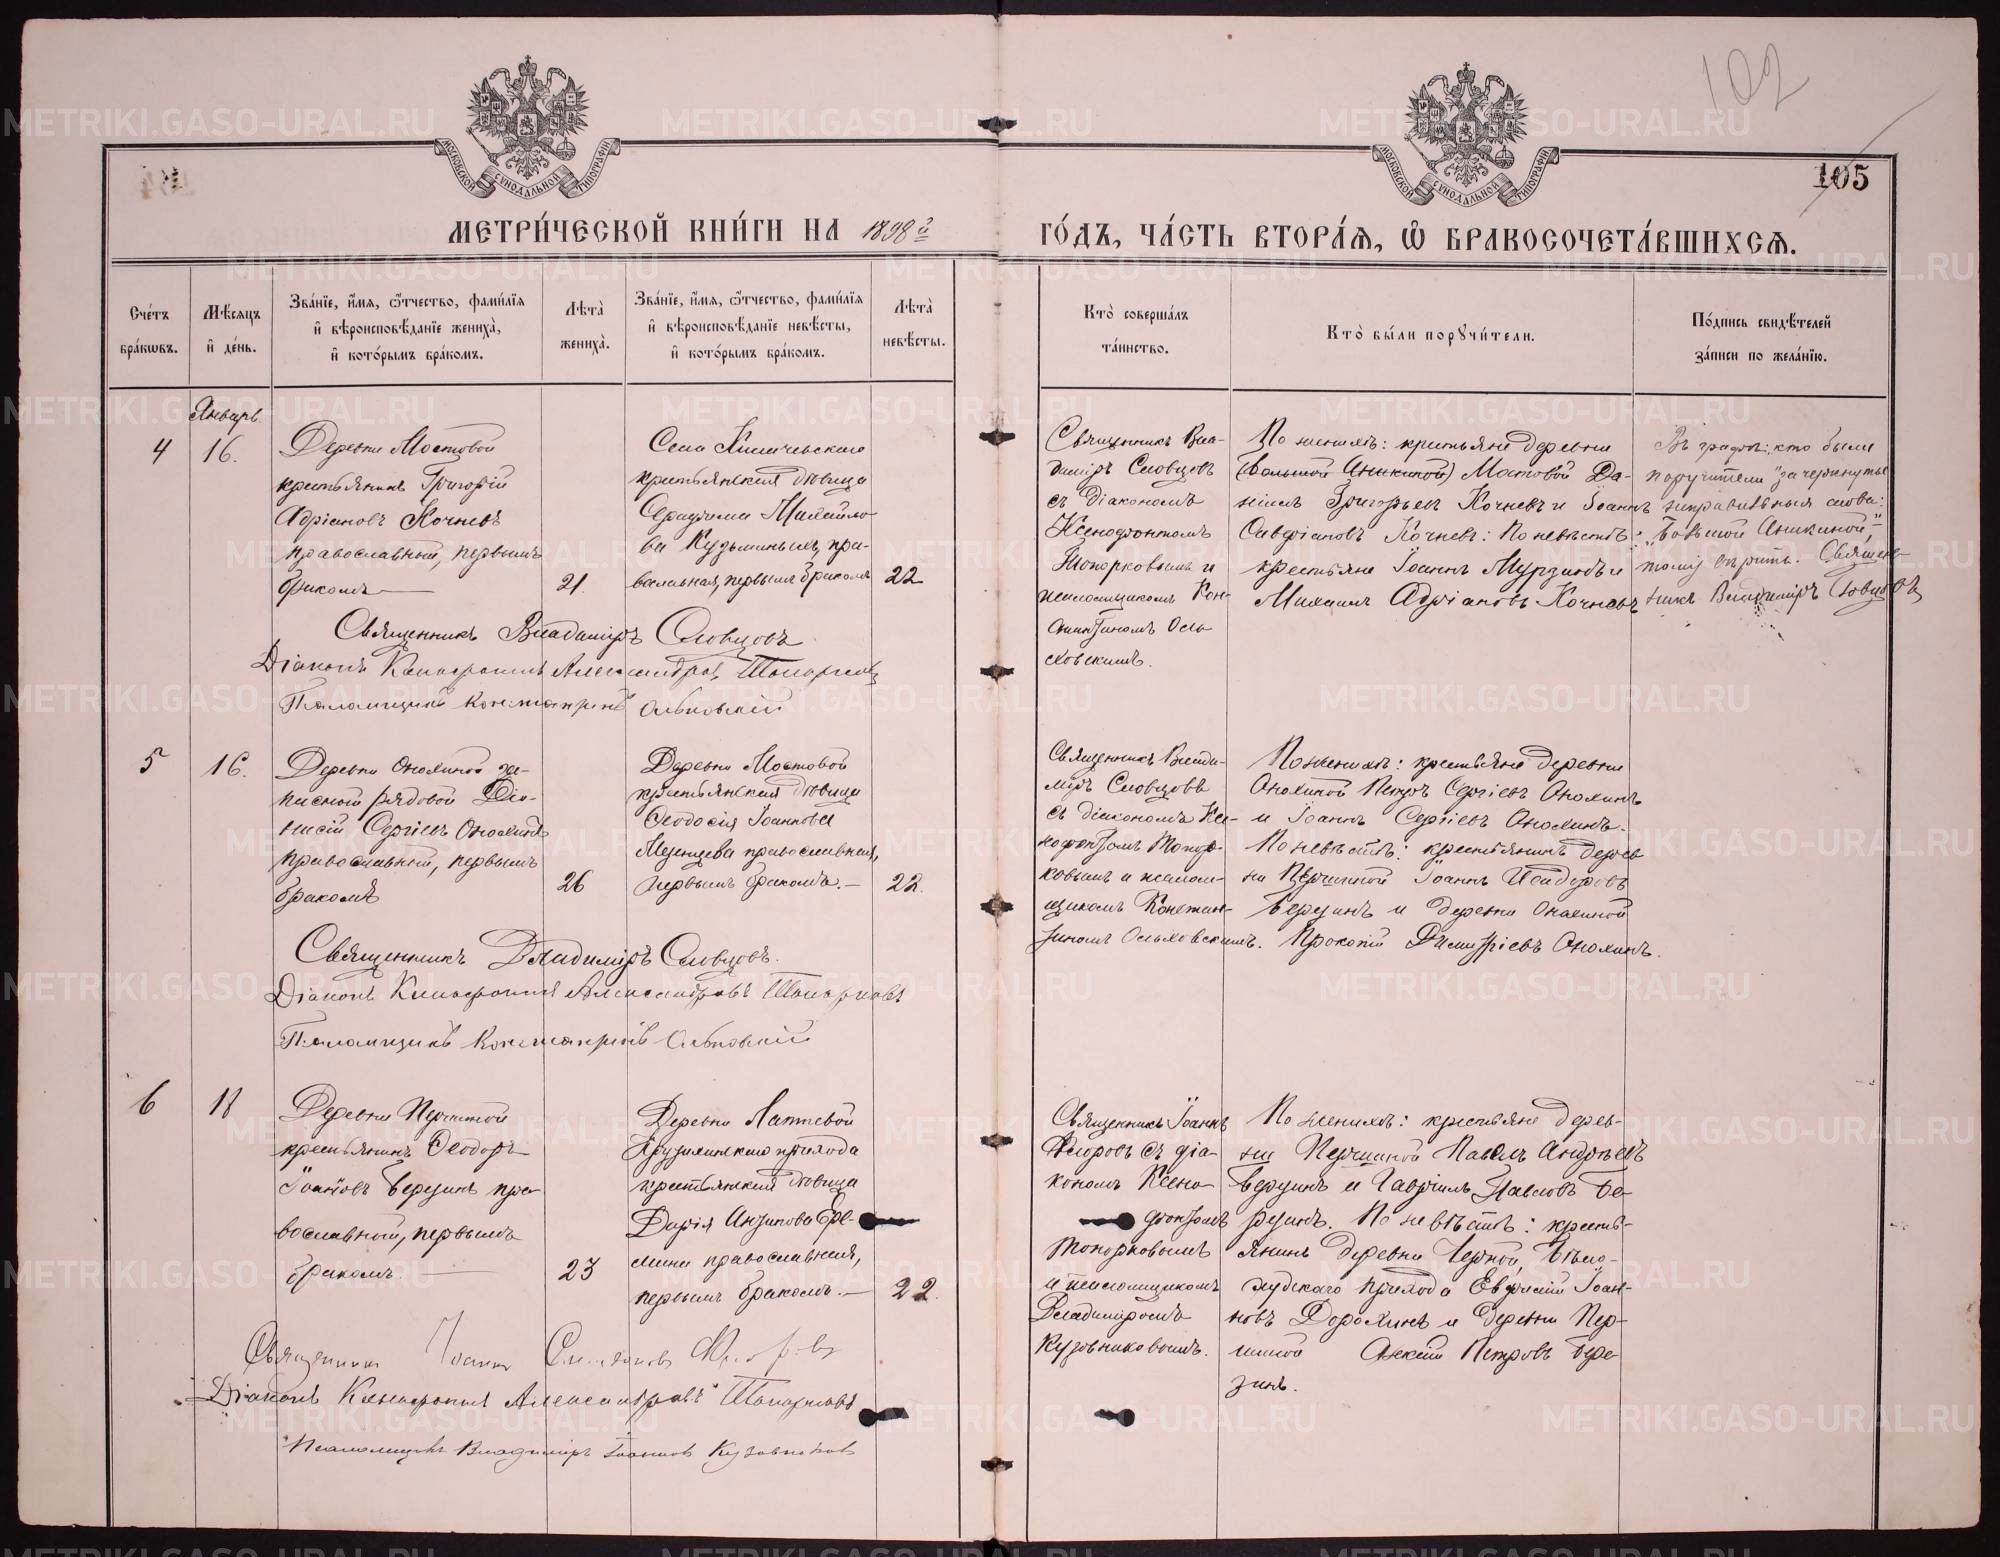 102
105
МОСКОВСКОЙ СѴНОДАЛЬНОЙ ТИПОГРАФІИ
МОСКОВСКОЙ СѴНОДАЛЬНОЙ ТИПОГРАФІИ
МЕТРИ́ЧЕСКОЙ КНИ́ГИ НА 1898й
ГО́ДЪ, ЧА́СТЬ ВТОРА́Ѧ, Ѡ҆ БРАКОСОЧЕТА́ВШИХСѦ.
Сче́тъ бра́кѡвъ.
Мѣ́сѧцъ и҆ де́нь.
Зва́нїе, и҆́мѧ, ѻ҆́тчество, фами́лїѧ и҆ вѣроисповѣ́данїе жениха̀, и҆ кото́рымъ бра́комъ.
Лѣта̀ жениха̀.
Зва́нїе, и҆́мѧ, ѻ҆́тчество, фами́лїѧ и҆ вѣроисповѣ́данїе невѣ́сты, и҆ кото́рымъ бра́комъ.
Лѣта̀ невѣ́сты.
Кто̀ соверша́лъ та́инство.
Кто̀ бы́ли порꙋчи́тели.
По́дпись свидѣ́телей за́писи по жела́нїю.
Январь
4
16.
Деревни Мостовой
крестьянинъ Григорій
Адріановъ Кочневъ
православный, первымъ
бракомъ
21.
крестьянская дѣвица
Серафима Михайло-
ва Кузьминыхъ, пра-
вославная, первымъ бракомъ
22
Священникъ Вла-
диміръ Словцовъ
съ діакономъ
Ксенофонтомъ
Топорковымъ и
псаломщикомъ Кон-
стантиномъ Оль-
ховскимъ.
По женихѣ: крестьяне деревни
(Большой Аникиной) Мостовой Да-
ніилъ Григорьевъ Кочневъ и Іоаннъ
Кочневъ: По невѣстѣ:
крестьяне Іоаннъ Мурзинъ и
Михаилъ Адріановъ Кочневъ
Въ графѣ: кто были
поручители "зачеркнутые
неправильныя слова:
"Большой Аникиной,"
Священ-
никъ Владиміръ Словцовъ
Священникъ Владиміръ Словцовъ
Діаконъ Ксенофонтъ Александровъ Топорковъ
Псаломщикъ Константинъ Ольховскій
5
16.
Деревни Анохиной за-
писной рядовой Діо-
нисій Сергіевъ Анохинъ
православный, первымъ
бракомъ
26
Деревни Мостовой
крестьянская дѣвица
Ѳеодосія Іоаннова
Мезенцева православная,
первымъ бракомъ.
22.
Священникъ Влади-
міръ Словцовъ
съ діакономъ Ксе-
нофонтомъ Топор-
ковымъ и псалом-
щикомъ Констан-
тиномъ Ольховскимъ.
По женихѣ: крестьяне деревни
Анохиной Петръ Сергіевъ Анохинъ
и Іоаннъ Сергіевъ Анохинъ.
По невѣстѣ: крестьянинъ дерев
ни Першиной Іоаннъ Исидоровъ
Березинъ и деревни Анохиной
Прокопій Димитріевъ Анохинъ.
Священникъ Владиміръ Словцовъ.
Діаконъ Ксенофонтъ Александровъ Топорковъ
Псаломщикъ Константинъ Ольховскій
6
18
Деревни Першиной
крестьянинъ Ѳеодоръ
Іоанновъ Березинъ пра-
вославный, первымъ
бракомъ.
23
Деревни Лаптевой
прихода
крестьянская дѣвица
Дарія Антипова Ере-
мина православная,
первымъ бракомъ.
22.
Священникъ Іоаннъ
Флоровъ съ діа-
кономъ Ксено-
фонтомъ
Топорковымъ
и псаломщикомъ
Владиміромъ
Кузовниковымъ.
По женихѣ: крестьяне дерев-
ни Першиной Павелъ Андреевъ
Березинъ и Гавріилъ Павловъ Бе-
резинъ. По невѣстѣ: кресть-
янинъ деревни Черной,
прихода Евфимій Іоан-
новъ Дорохинъ и деревни Пер-
шиной Петровъ Бере-
зинъ.
Священникъ Іоаннъ Флоровъ
Діаконъ Ксенофонтъ Александровъ Топорковъ
Псаломщикъ Владиміръ Іоанновъ Кузовниковъ
METRIKI.GASO-URAL.RU